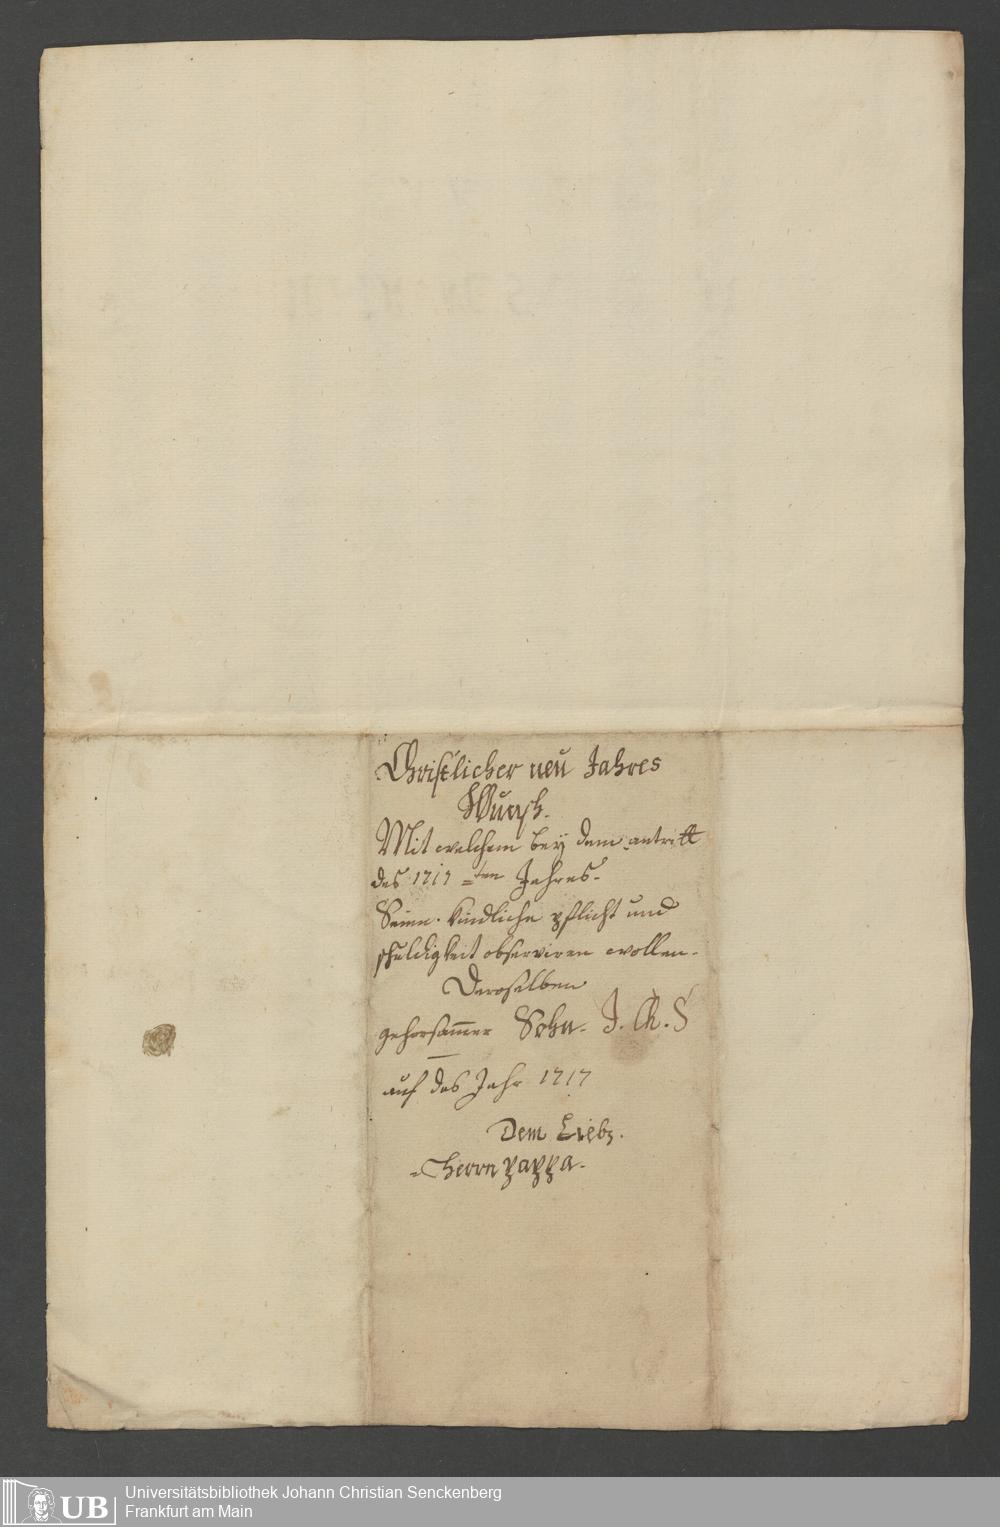 Christlicher neu Jahres
Wunsch.
Mit welchem bey dem antritt
des 1717=ten Jahres.
Seine kindliche pflicht und
schuldigkeit observiren wollen.
Deroselben
gehorsam̅er Sohn. J. Ch. S
auf das Jahr 1717
Dem Liebs.
Herrn pappa.
UB
Universitätsbibliothek Johann Christian Senckenberg
Frankfurt am Main